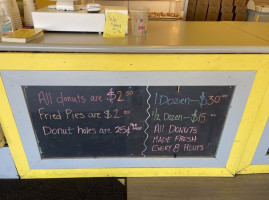 All donuts are $2.50
Fried Pies are $2.00
Donut holes are 25¢
1 Dozen — $30.00
1/2 Dozen — $15.00
All Donuts
MADE FRESH
EVERY 8 HOURS